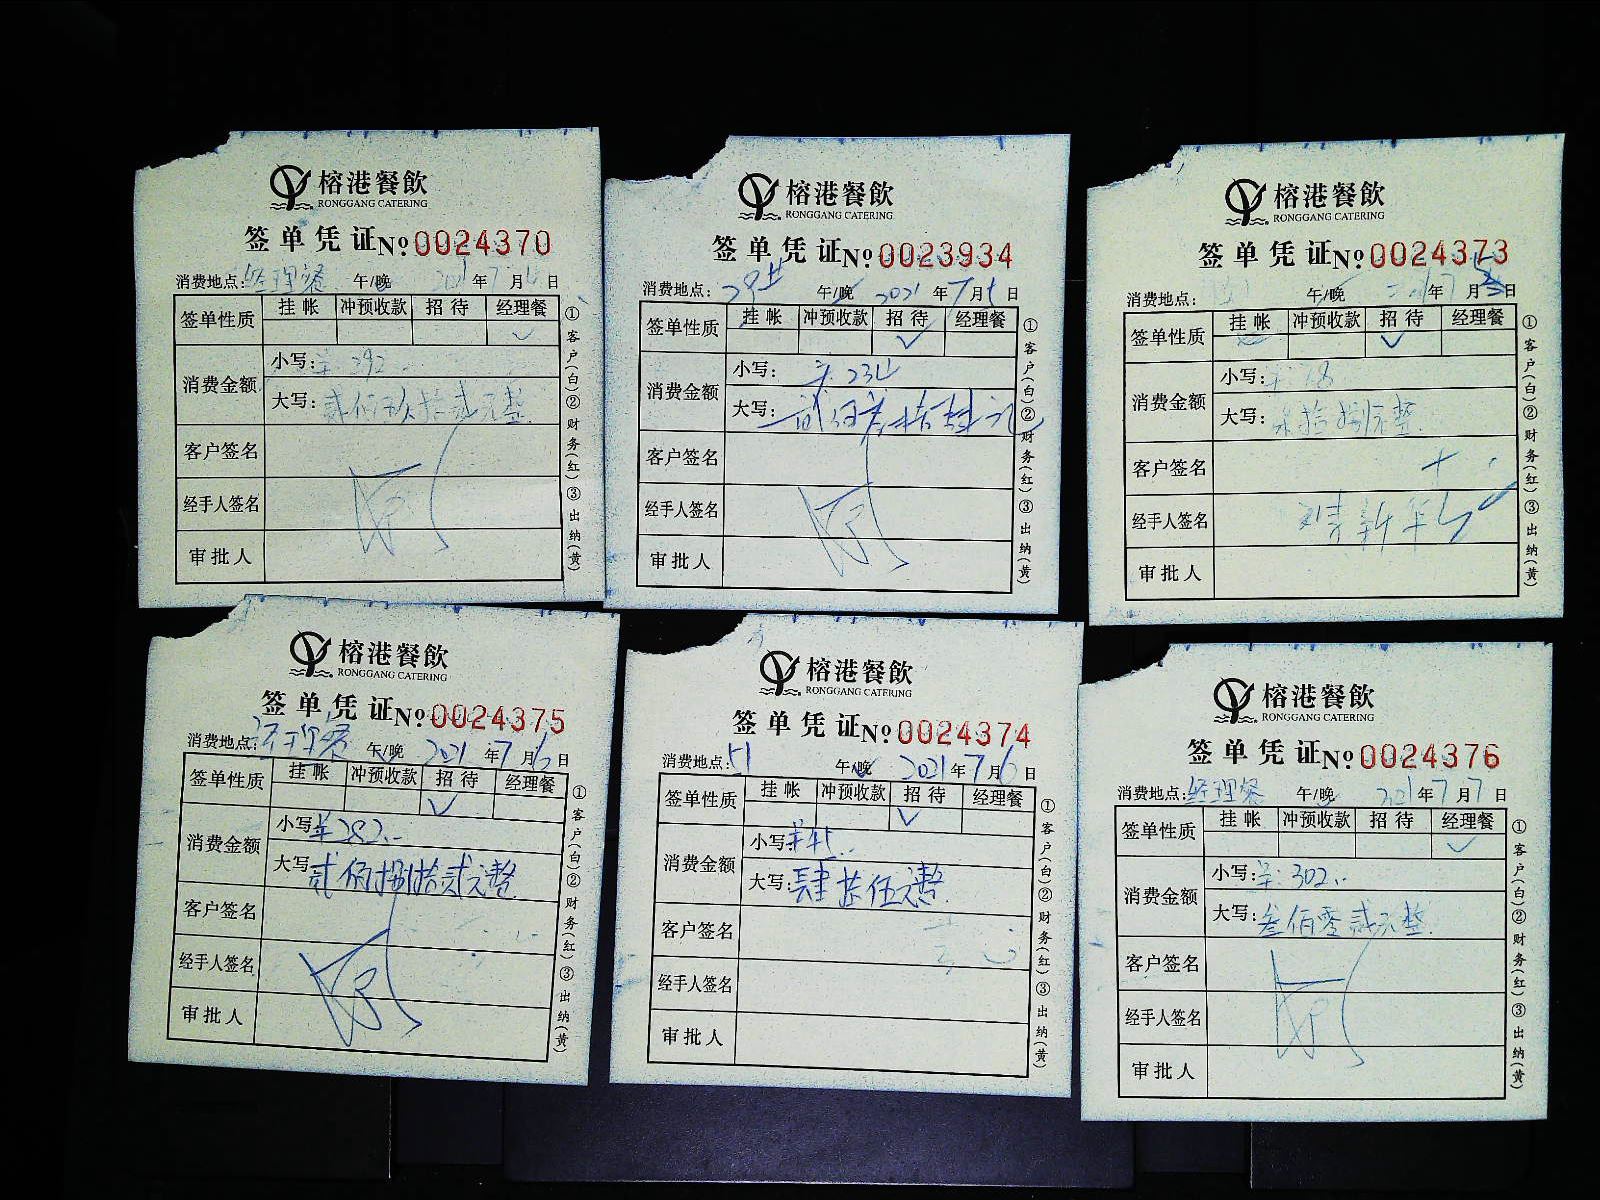 榕港餐飲
RONGGANG CATERING
签单凭证 №0024370
消费地点：经理餐 午/晚 2021年7月日
签单性质 挂帐 冲预收款 招待 经理餐
✓
消费金额 小写：¥292
大写：贰佰玖拾贰元整
客户签名
经手人签名
审批人
①客户(白)②财务(红)③出纳(黄)
榕港餐飲
RONGGANG CATERING
签单凭证 №0023934
消费地点： 午/晚 2021年7月日
签单性质 挂帐 冲预收款 招待 经理餐
✓
消费金额 小写：
大写：
客户签名
经手人签名
审批人
①客户(白)②财务(红)③出纳(黄)
榕港餐飲
RONGGANG CATERING
签单凭证 №0024373
消费地点： 午/晚 年7月5日
签单性质 挂帐 冲预收款 招待 经理餐
✓
消费金额 小写：
大写：拾捌元整
客户签名
经手人签名
审批人
①客户(白)②财务(红)③出纳(黄)
榕港餐飲
RONGGANG CATERING
签单凭证 №0024375
消费地点：经理餐 午/晚 2021年7月6日
签单性质 挂帐 冲预收款 招待 经理餐
✓
消费金额 小写¥282.-
大写：贰佰捌拾贰元整
客户签名
经手人签名
审批人
①客户(白)②财务(红)③出纳(黄)
榕港餐飲
RONGGANG CATERING
签单凭证 №0024374
消费地点：51 午/晚 2021年7月6日
签单性质 挂帐 冲预收款 招待 经理餐
✓
消费金额 小写：¥45.-
大写：肆拾伍元整
客户签名
经手人签名
审批人
①客户(白)②财务(红)③出纳(黄)
榕港餐飲
RONGGANG CATERING
签单凭证 №0024376
消费地点：经理餐 午/晚 2021年7月7日
签单性质 挂帐 冲预收款 招待 经理餐
✓
消费金额 小写：¥302.-
大写：叁佰零贰元整
客户签名
经手人签名
审批人
①客户(白)②财务(红)③出纳(黄)